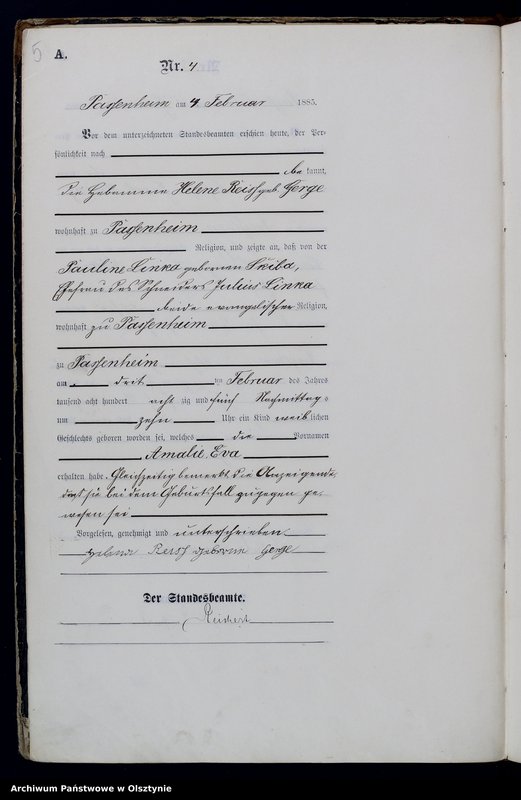 5
A.
Nr. 4
Passenheim am 4. Februar 1885.
Vor dem unterzeichneten Standesbeamten erschien heute, der Per-
sönlichkeit nach
be kannt,
die Hebamme Helene Reiss geb. Gerge
wohnhaft zu Passenheim
Religion, und zeigte an, daß von der
Pauline Linka geborenen Skiba,
Ehefrau des Schneiders Julius Linka
beide evangelischer Religion,
wohnhaft zu Passenheim
zu Passenheim
am drit ten Februar des Jahres
tausend acht hundert acht zig und fünf Nachmittags
um zehn Uhr ein Kind weib lichen
Geschlechts geboren worden sei, welches die Vornamen
Amalie, Eva
erhalten habe. Gleichzeitig bemerkt die Anzeigende,
daß sie bei dem Geburtsfall zugegen ge-
wesen sei
Vorgelesen, genehmigt und unterschrieben
Helene Reiss geborene Gerge
Der Standesbeamte.
Reichert
Archiwum Państwowe w Olsztynie